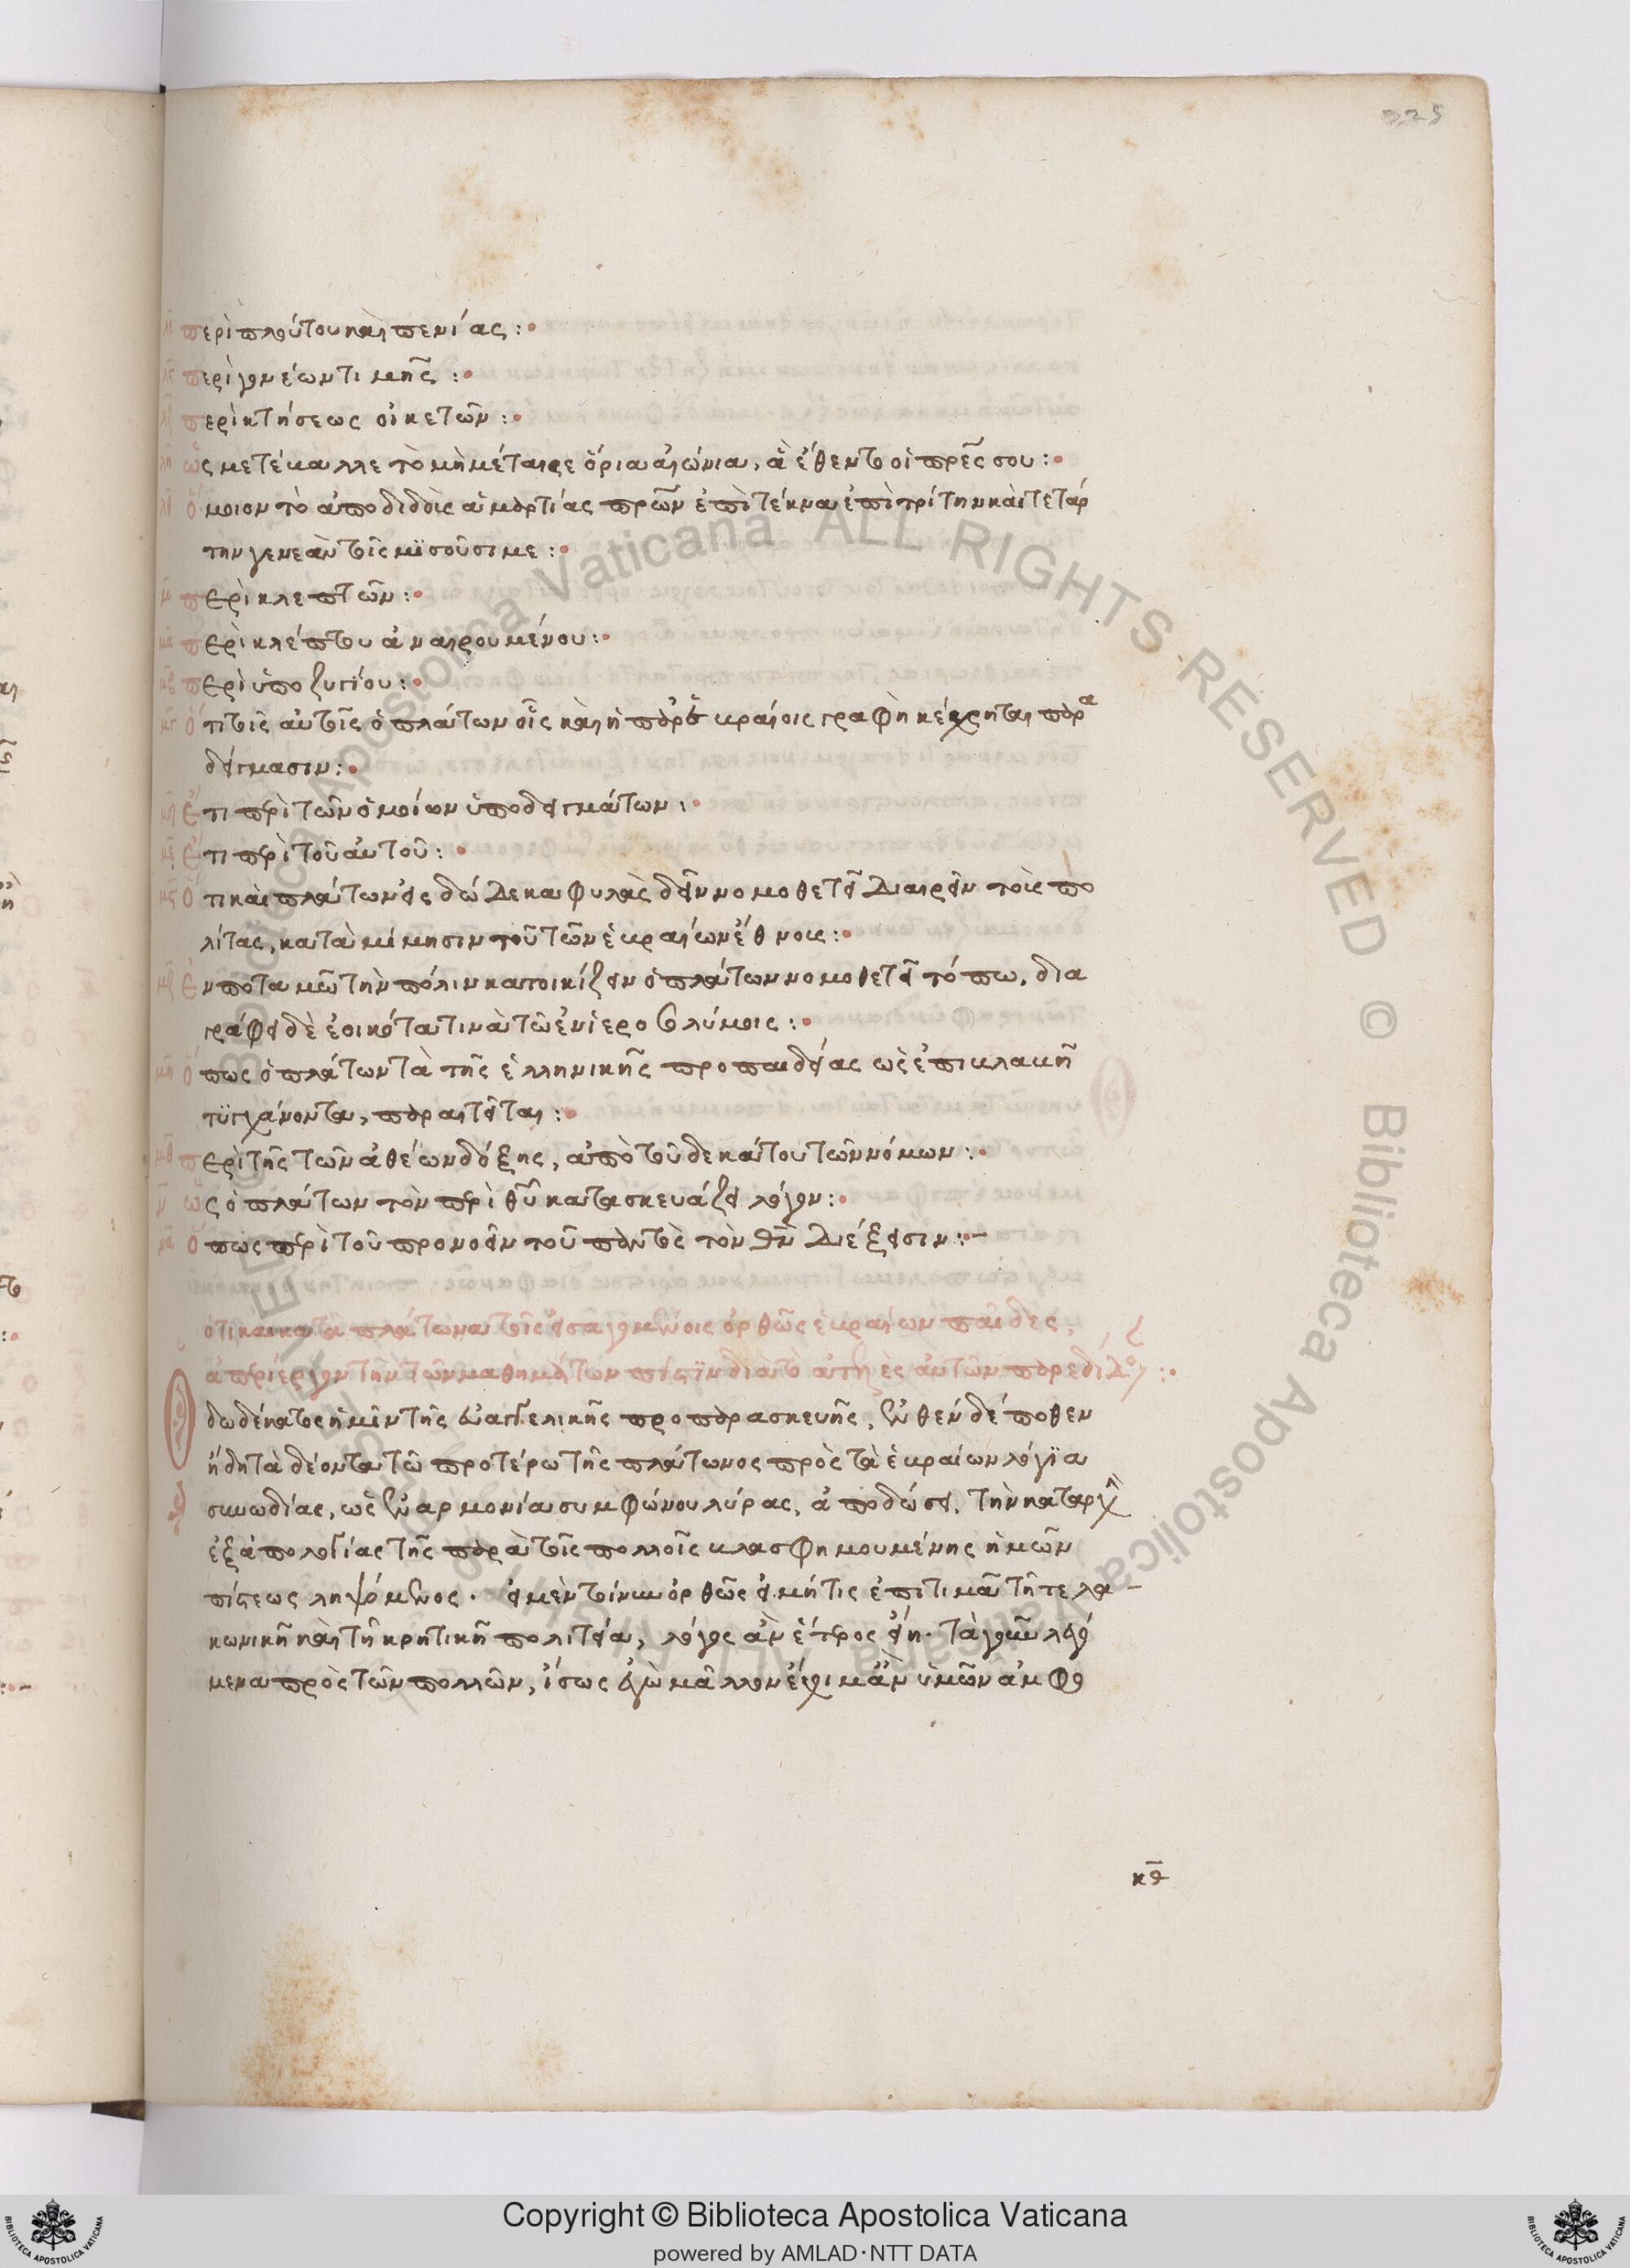 225
λε περὶ πλούτου καὶ πενίας:
λς περὶ γονέων τιμῆς:
λζ περὶ κτήσεως οἰκετῶν:
λη ὡς μετέβαλλε τὸ μὴ μέταιρε ὅρια αἰώνια, ἃ ἔθεντο οἱ πρες σου:
λθ ὅμοιον τὸ ἀποδιδοὺς ἁμαρτίας πρων ἐπὶ τέκνα ἐπὶ τρίτην καὶ τετάρ
την γενεὰν τοῖς μϊσοῦσι με:
μ περὶ κλεπτῶν:
μα περὶ κλέπτου ἀναιρουμένου:
μβ περὶ ὑποζυγίου:
μγ ὅτι τοῖς αὐτοῖς ὁ πλάτων οἷς καὶ ἡ παρ' ἑβραίοις γραφὴ κέχρηται παρα
δείγμασιν:
μδ ἔτι περὶ τῶν ὁμοίων ὑποδειγμάτων:
με ἔτι περὶ τοῦ αὐτοῦ:
μς ὅτι καὶ πλάτων εἰς δώδεκα φυλὰς δεῖν νομοθετεῖ διαιρεῖν τοὺς πο
λίτας, κατὰ μίμησιν τοῦ τῶν ἑβραίων ἔθνους:
μζ ἐν ποταμῶ τὴν πόλιν κατοικίζειν ὁ πλάτων νομοθετεῖ τόπω, δια
γράφει δὲ ἐοικότα τινὰ τῶ ἐν ἱεροσολύμοις:
μη ὅπως ὁ πλάτων τὰ τῆς ἑλληνικῆς προπαιδείας ὡς ἐπιβλαβῆ
τϋγχάνοντα, παραιτεῖται:
μθ περὶ τῆς τῶν ἀθέων δόξης, ἀπὸ τοῦ δεκάτου τῶν νόμων:
ν ὡς ὁ πλάτων τὸν περὶ θυ κατασκευάζει λόγον:
να ὅπως περὶ τοῦ προνοεῖν τοῦ παντὸς τὸν θν διέξεισιν:-
ὅτι καὶ κατὰ πλάτωνα τοῖς εἰσαγομένοις ὀρθῶς ἑβραίων παῖδες,
ἀπερίεργον τὴν τῶν μαθημάτων πίστϊν διὰ τὸ ἀτελὲς αὐτῶν παρεδίδουν:
Ὁ δωδέκατος ἡμῖν τῆς εὐαγγελικῆς προπαρασκευῆς, ἐνθένδέ ποθεν
ἤδη τὰ δέοντα τῶ προτέρω τῆς πλάτωνος πρὸς τὰ ἑβραίων λόγϊα
συνωδίας, ὡς ἐν ἁρμονία συμφώνου λύρας, ἀποδώσει, τὴν καταρχὴν
ἐξ ἀπολογίας τῆς παρὰ τοῖς πολλοῖς βλασφημουμένης ἡμῶν
πίστεως ληψόμενος. εἰ μὲν τοίνυν ὀρθῶς εἰ μή τις ἐπιτιμᾶ τῆ τε λα-
κωνικῆ καὶ τῆ κρητικῆ πολιτεία, λόγος ἂν ἕτερος εἴη. τὰ γοῦν λεγό
μενα πρὸς τῶν πολλῶν, ἴσως ἐγὼ μᾶλλον ἔχοιμ' ἂν ὑμῶν ἀμφο
κθ
Copyright © Biblioteca Apostolica Vaticana
powered by AMLAD·NTT DATA